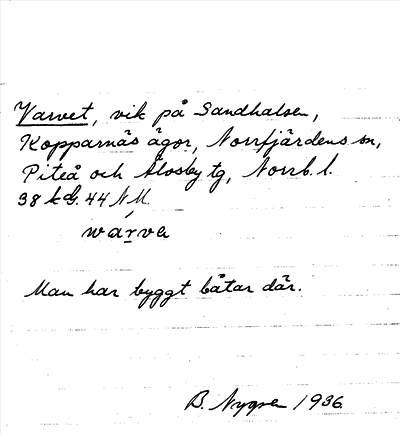 Varvet, vik på Sandhalsen,
Kopparnäs ägor, Norrfjärdens sn,
Piteå och Älvsby tg, Norrb. l.
38 kb. 44 N M.
warva
Man har byggt båtar där.
B. Nygren 1936.